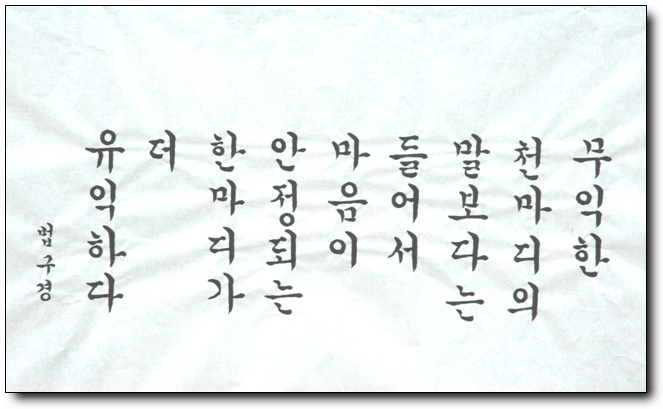 무익한
천마디의
말보다는
들어서
마음이
안정되는
한마디가
더
유익하다
법구경